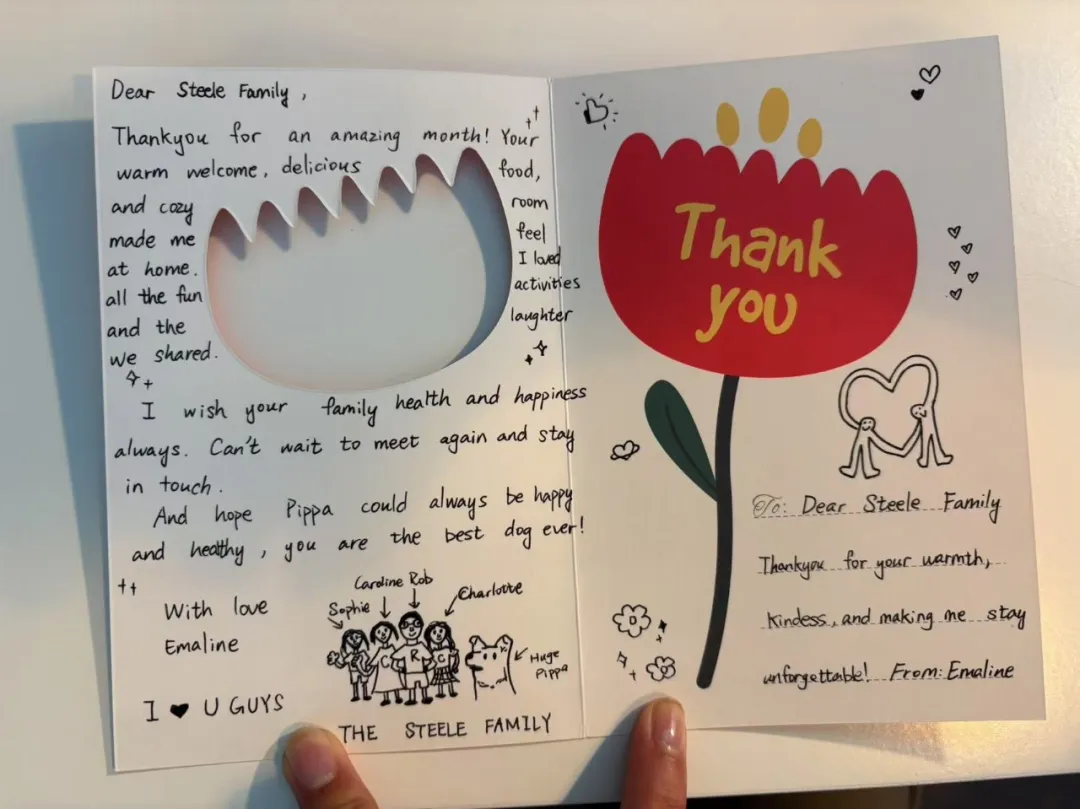 Dear Steele Family,
Thankyou for an amazing month! Your
warm welcome, delicious food,
and cozy room
made me feel
at home. I loved
all the fun activities
and the laughter
we shared.
I wish your family health and happiness
always. Can't wait to meet again and stay
in touch.
And hope Pippa could always be happy
and healthy, you are the best dog ever!
With love
Emaline
I ♥ U GUYS
Sophie
Caroline
Rob
Charlotte
C
R
C
Huge
Pippa
THE STEELE FAMILY
Thank
you
To: Dear Steele Family
Thankyou for your warmth,
kindess, and making me stay
unforgettable! From: Emaline